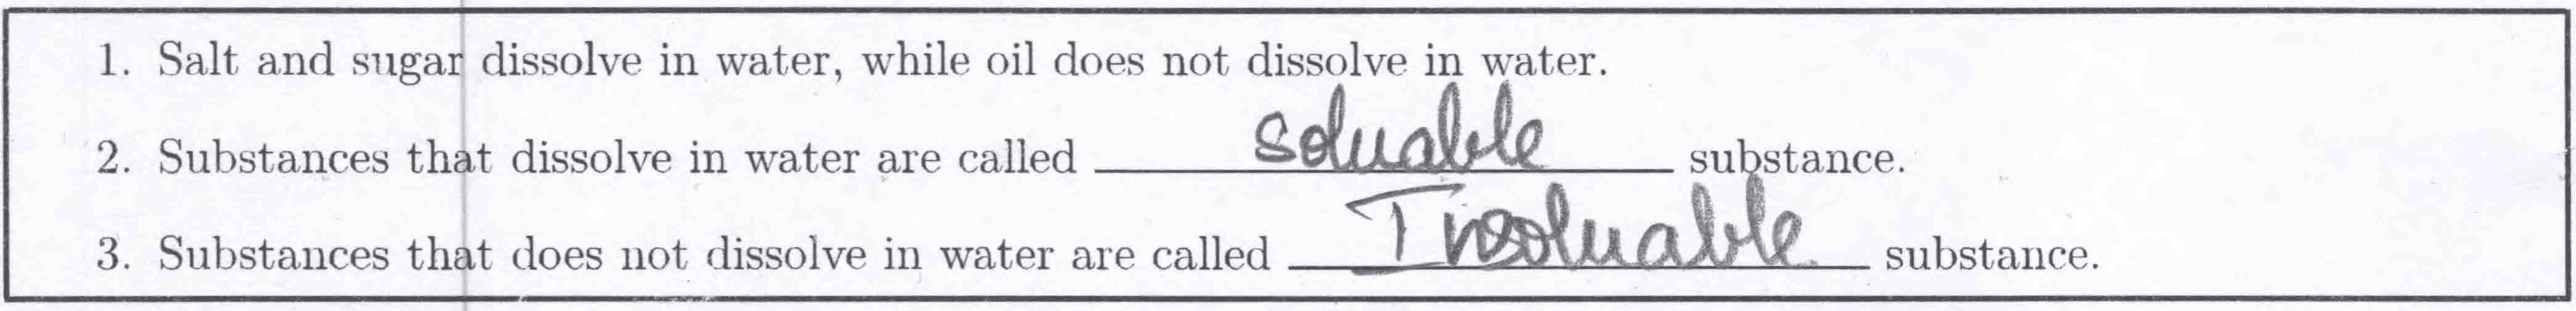 1. Salt and sugar dissolve in water, while oil does not dissolve in water.
2. Substances that dissolve in water are called soluable substance.
3. Substances that does not dissolve in water are called Insoluable substance.